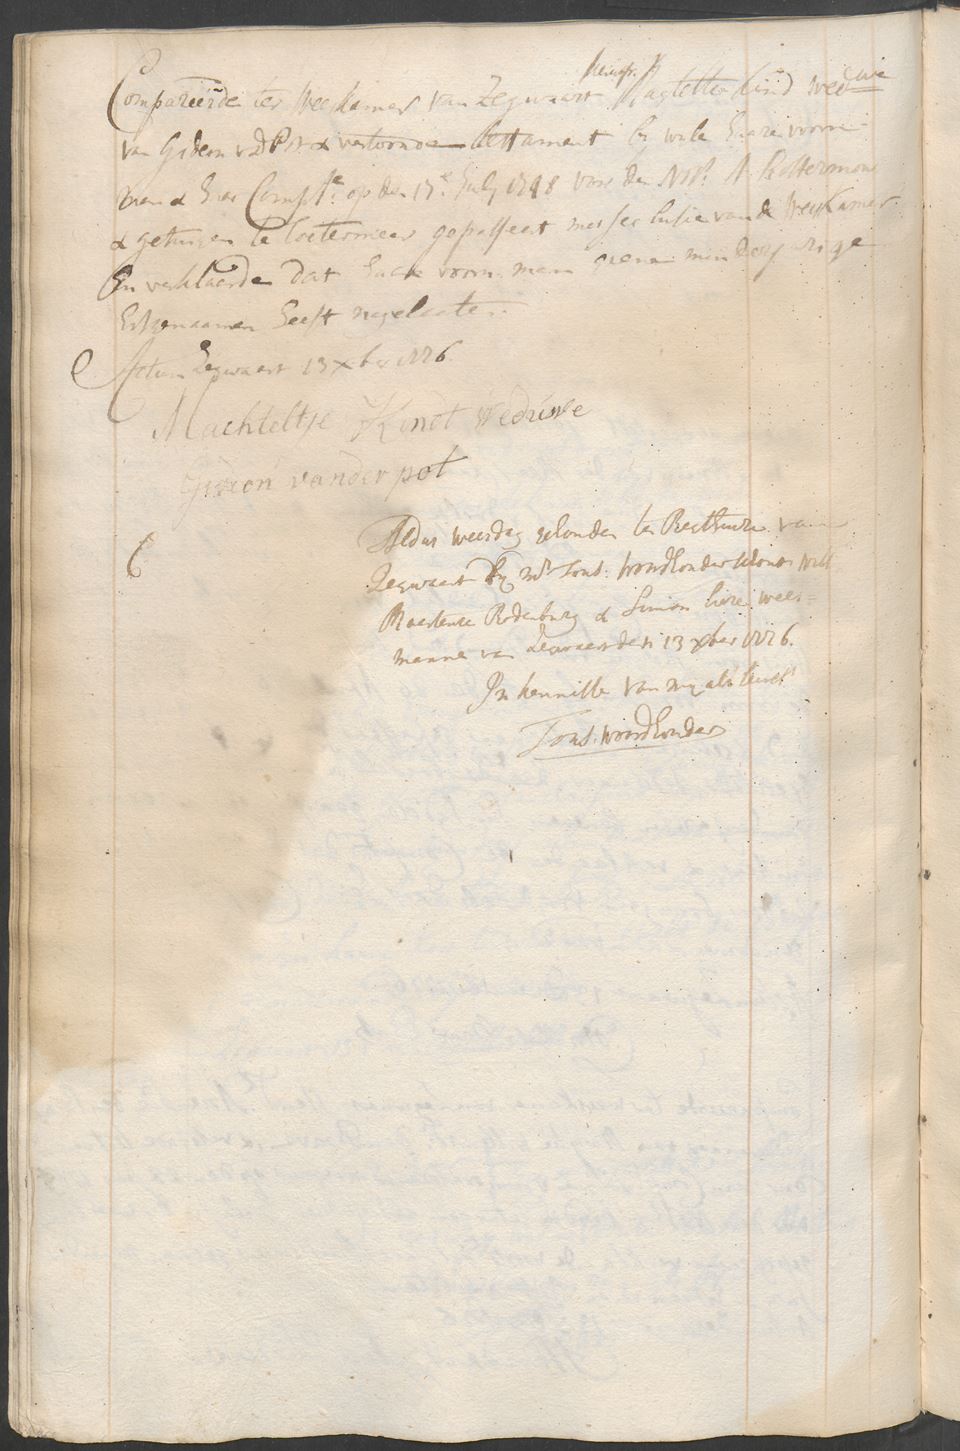 Compareerde ter weeskamer van Zegwaart Magteltie Kind wedwe
van Gideon vd Pot & vertoonde testament by wele haare voorn
man & haer Compte. op den 17e July 1748 voor den Nots. A. Kostermon
& getuigen te Soetermeer gepasseert met seclusie van de Weeskamer
En verklaarde dat haare voorn. man geene minderjarige
Erfgenaamen heeft nagelaaten.
Actum Zegwaart 13 Xber 1776.
Machteltje Kindt Weduwe
Gideon vander pot
Aldus weesdag gehouden ten Regthuize van
Zegwaart by mr. Jons. Woordhouder schout Will
Maertense Rodenburg & Simon wees=
manne van Zegwaart den 13 xber 1776.
In kennisse van my als secrets
Jons. Woordhouder